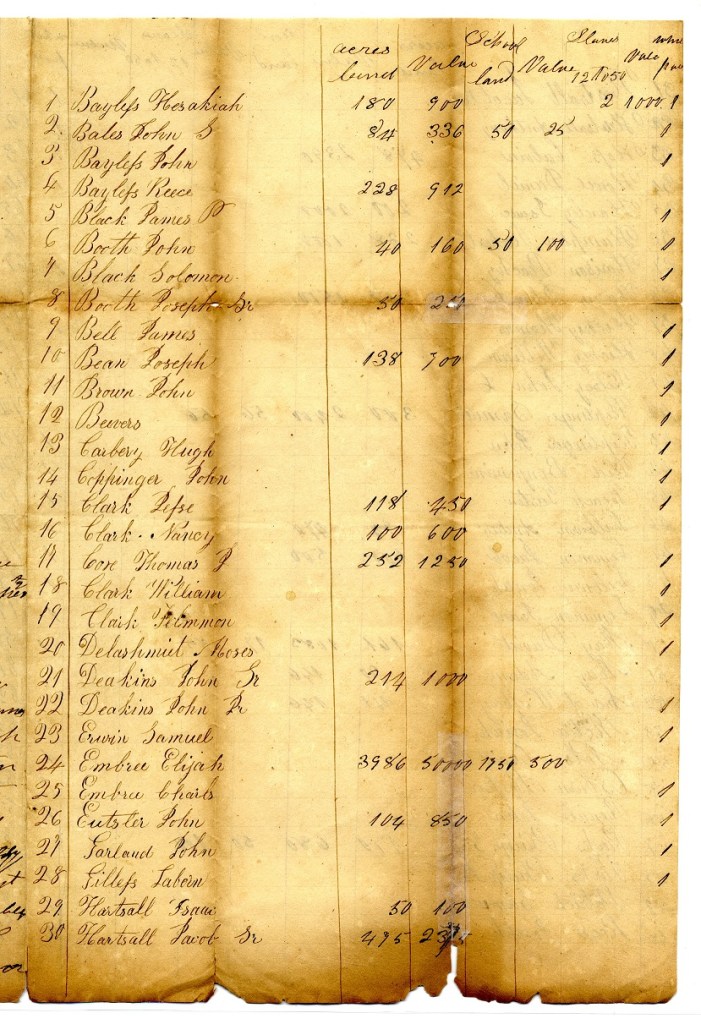 acres School Slaves white
land Value land Value 12 to 50 Value
1 Bayless Hesakiah 180 900 2 1000 1
2 Bales John S 84 336 50 25 1
3 Bayless John 1
4 Bayless Reece 228 912
5 Black James P 1
6 Booth John 40 160 50 100 1
7 Black Solomon 1
8 Booth Joseph Sr 50
9 Bell James 1
10 Bean Joseph 138 700 1
11 Brown John 1
12 Beevers 1
13 Carbery Hugh 1
14 Coppinger John 1
15 Clark Jesse 118 450 1
16 Clark Nancy 100 600
17 Coxe Thomas J 252 1250 1
18 Clark William 1
19 Clark 1
20 Delashmut Moses 1
21 Deakins John Sr 214 1000
22 Deakins John Jr 1
23 Erwin Samuel 1
24 Embree Elijah 3986 50000 1950 500
25 Embree Charls 1
26 Eutsler John 104 850 1
27 Garland John 1
28 Gilless Tabern 1
29 Hartsall Isaac 50 100
30 Hartsall Jacob Sr 495